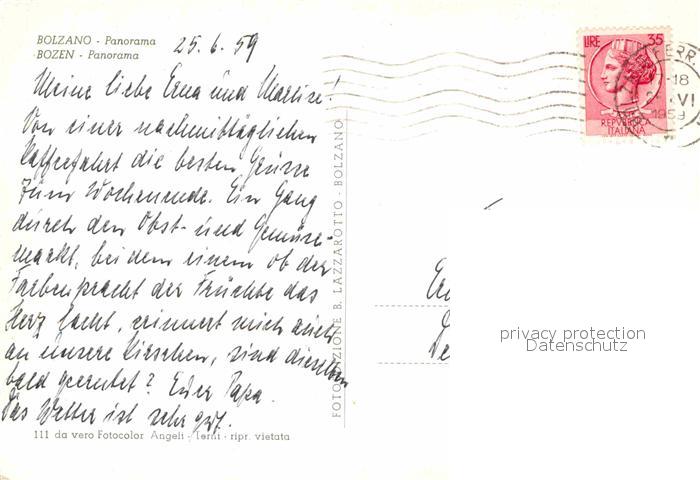 BOLZANO - Panorama
BOZEN - Panorama
25.6.59
Meine liebe Erna und Marlise!
Von einer nachmittäglichen
Kaffeefahrt die besten Grüsse
zum Wochenende. Ein Gang
durch den Obst- und Gemüse-
markt, bei dem einem ob der
Farbenpracht der Früchte das
Herz lacht, erinnert mich auch
an unsere Kirschen, sind dieselben
bald geerntet? Euer Papa.
Das Wetter ist sehr gut.
111 da vero Fotocolor Angeli - Terni - ripr. vietata
B. LAZZAROTTO - BOLZANO
LIRE 35
REPVBBLICA
ITALIANA
FERR
-18
VI
1959
privacy protection
Datenschutz